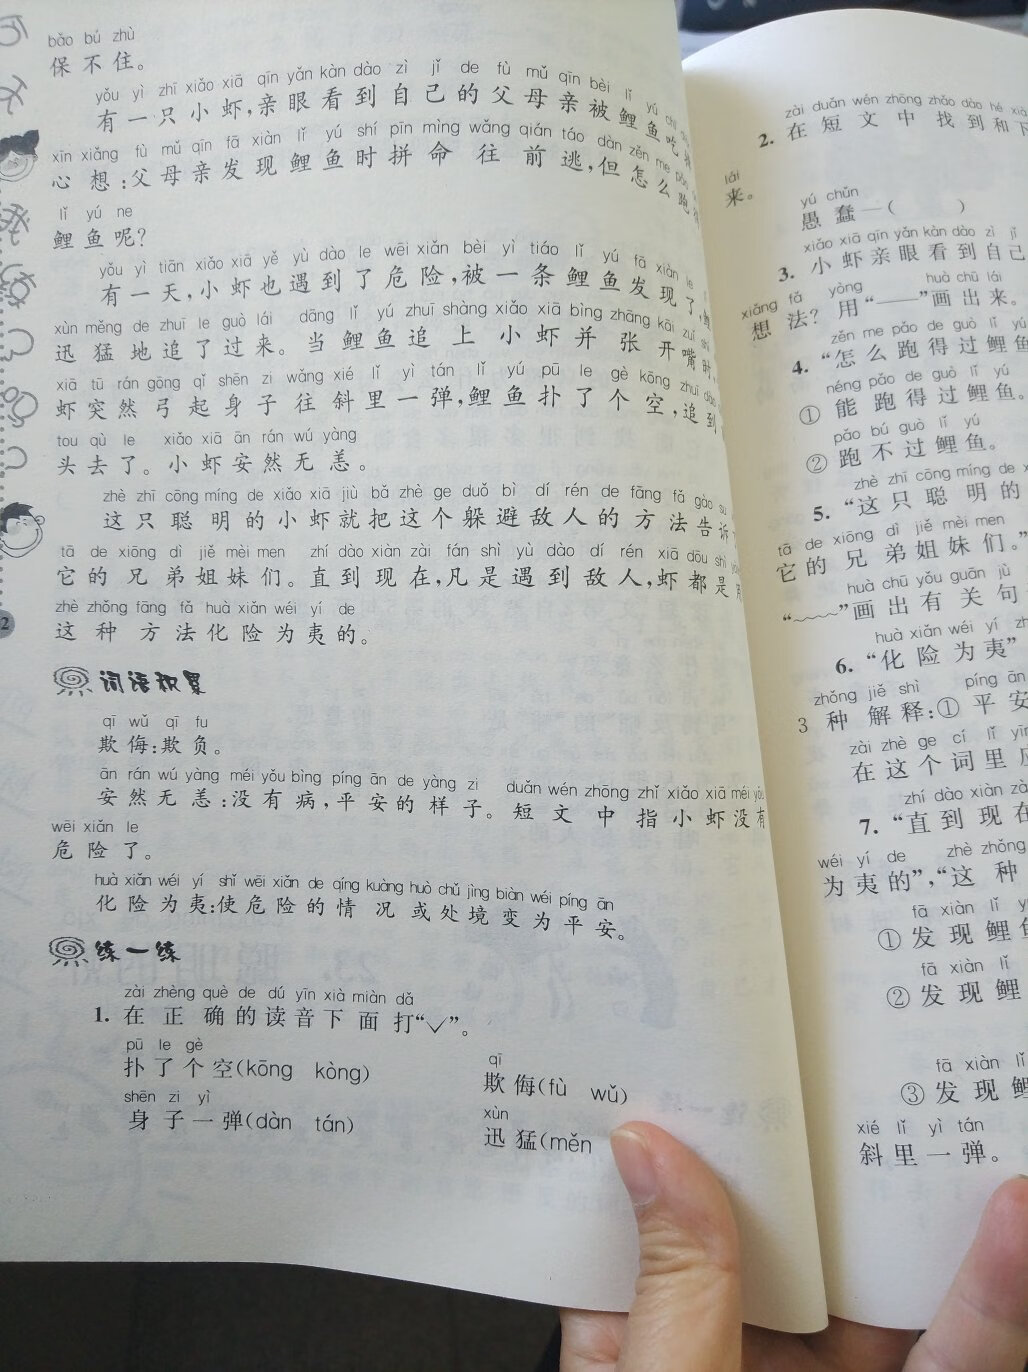 bǎo bú zhù
保不住。
yǒu yì zhī xiǎo xiā qīn yǎn kàn dào zì jǐ de fù mǔ qīn bèi lǐ yú chī
有一只小虾,亲眼看到自己的父母亲被鲤鱼吃
xīn xiǎng fù mǔ qīn fā xiàn lǐ yú shí pīn mìng wǎng qián táo dàn zěn me pǎo
心想:父母亲发现鲤鱼时拼命往前逃,但怎么跑
lǐ yú ne
鲤鱼呢?
yǒu yì tiān xiǎo xiā yě yù dào le wēi xiǎn bèi yì tiáo lǐ yú fā xiàn le
有一天,小虾也遇到了危险,被一条鲤鱼发现了,
xùn měng de zhuī le guò lái dāng lǐ yú zhuī shàng xiǎo xiā bìng zhāng kāi zuǐ
迅猛地追了过来。当鲤鱼追上小虾并张开嘴时,
xiā tū rán gōng qǐ shēn zi wǎng xié lǐ yì tán lǐ yú pū le gè kōng zhuī dào
虾突然弓起身子往斜里一弹,鲤鱼扑了个空,追到
tou qù le xiǎo xiā ān rán wú yàng
头去了。小虾安然无恙。
zhè zhī cōng míng de xiǎo xiā jiù bǎ zhè ge duǒ bì dí rén de fāng fǎ gào su
这只聪明的小虾就把这个躲避敌人的方法告诉
tā de xiōng dì jiě mèi men zhí dào xiàn zài fán shì yù dào dí rén xiā dōu shì
它的兄弟姐妹们。直到现在,凡是遇到敌人,虾都是用
zhè zhǒng fāng fǎ huà xiǎn wéi yí de
这种方法化险为夷的。
词语积累
qī wǔ qī fu
欺侮:欺负。
ān rán wú yàng méi yǒu bìng píng ān de yàng zi duǎn wén zhōng zhǐ xiǎo xiā méi yǒu
安然无恙:没有病,平安的样子。短文中指小虾没有
wēi xiǎn le
危险了。
huà xiǎn wéi yí shǐ wēi xiǎn de qíng kuàng huò chǔ jìng biàn wéi píng ān
化险为夷:使危险的情况或处境变为平安。
练一练
zài zhèng què de dú yīn xià miàn dǎ
1. 在正确的读音下面打“✓”。
pū le gè
扑了个空(kōng kòng)
qī
欺侮(fù wǔ)
shēn zi yì
身子一弹(dàn tán)
xùn
迅猛(měn
2
zài duǎn wén zhōng zhǎo dào hé xià
2. 在短文中找到和下
lái
来。
yú chǔn
愚蠢—( )
xiǎo xiā qīn yǎn kàn dào zì jǐ
3. 小虾亲眼看到自己
xiǎng fǎ yòng huà chū lái
想法?用“——”画出来。
zěn me pǎo de guò lǐ yú
4. “怎么跑得过鲤鱼
néng pǎo de guò lǐ yú
① 能跑得过鲤鱼。
pǎo bú guò lǐ yú
② 跑不过鲤鱼。
zhè zhī cōng míng de
5. “这只聪明的
tā de xiōng dì jiě mèi men
它的兄弟姐妹们。”
huà chū yǒu guān jù
“﹏﹏”画出有关句
huà xiǎn wéi yí
6. “化险为夷”
zhǒng jiě shì píng ān
3种解释:① 平安
zài zhè ge cí lǐ
在这个词里
zhí dào xiàn zài
7. “直到现在
wéi yí de zhè zhǒng
为夷的”,“这种
fā xiàn lǐ
① 发现鲤鱼
fā xiàn lǐ
② 发现鲤
fā xiàn lǐ
③ 发现鲤
xié lǐ yì tán
斜里一弹。